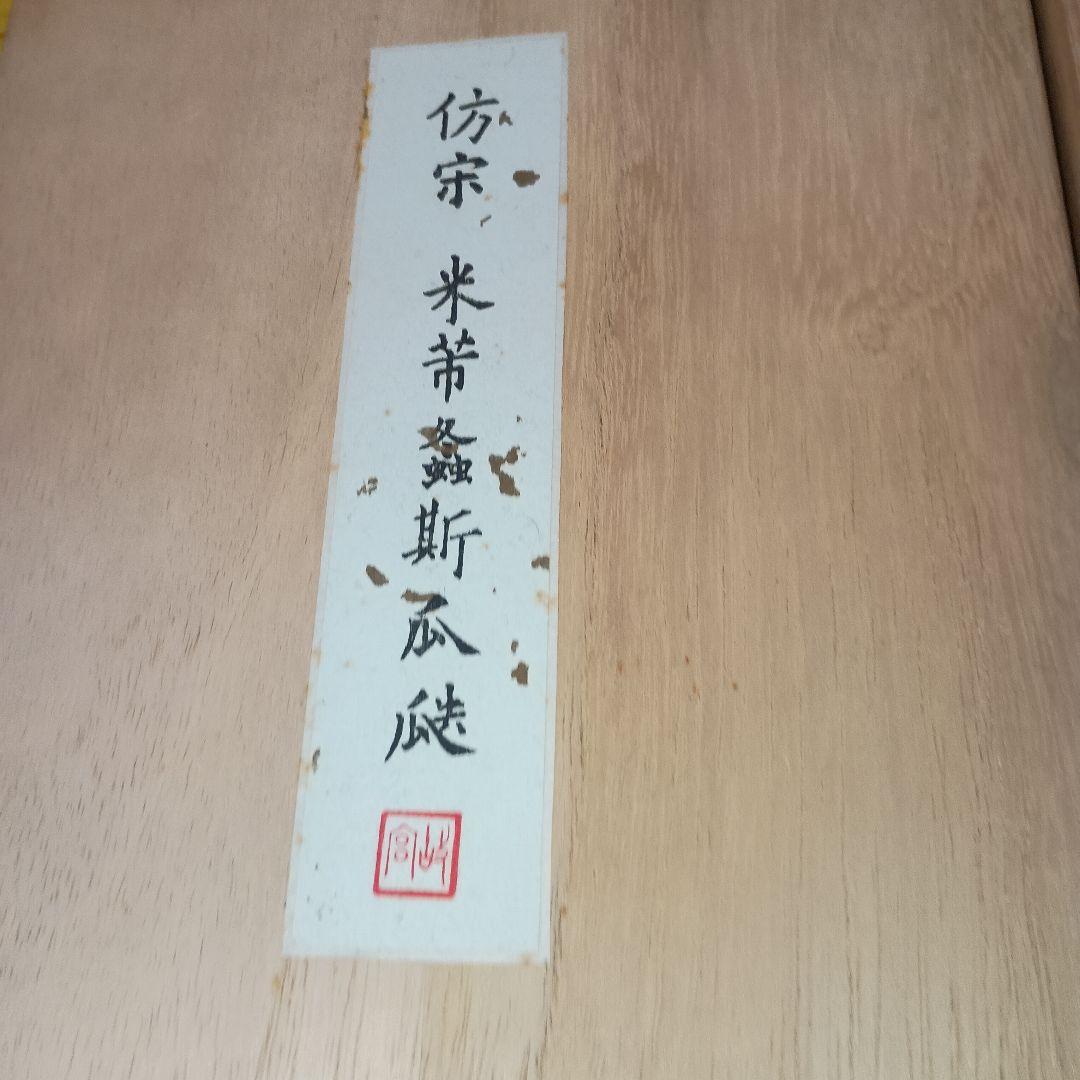 仿宋 米芾螽斯瓜瓞
故宮